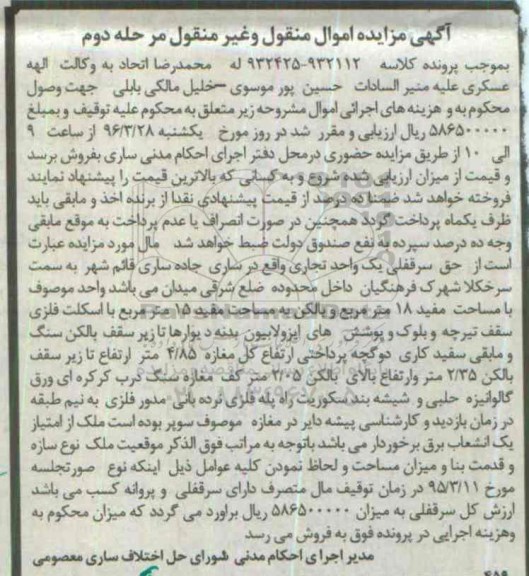 آگهی مزایده اموال منقول وغیر منقول مرحله دوم
بموجب پرونده کلاسه ۹۳۲۱۱۲-۹۳۲۴۲۵ له محمدرضا اتحاد به وکالت الهه
عسکری علیه منیر السادات حسین پور موسوی -خلیل مالکی بابلی جهت وصول
محکوم به و هزینه های اجرائی اموال مشروحه زیر متعلق به محکوم علیه توقیف و بمبلغ
۵۸۶۵۰۰۰۰۰ ریال ارزیابی و مقرر شد در روز مورخ یکشنبه ۹۶/۳/۲۸ از ساعت ۹
الی ۱۰ از طریق مزایده حضوری درمحل دفتر اجرای احکام مدنی ساری بفروش برسد
و قیمت از میزان ارزیابی شده شروع و به کسانی که بالاترین قیمت را پیشنهاد نمایند
فروخته خواهد شد ضمنا ده درصد از قیمت پیشنهادی نقدا از برنده اخذ و مابقی باید
ظرف یکماه پرداخت گردد همچنین در صورت انصراف یا عدم پرداخت به موقع مابقی
وجه ده درصد سپرده به نفع صندوق دولت ضبط خواهد شد مال مورد مزایده عبارت
است از حق سرقفلی یک واحد تجاری واقع در ساری جاده ساری قائم شهر به سمت
سرخکلا شهرک فرهنگیان داخل محدوده ضلع شرقی میدان می باشد واحد موصوف
با مساحت مفید ۱۸ متر مربع و بالکن به مساحت مفید ۱۵ متر مربع با اسکلت فلزی
سقف تیرچه و بلوک و پوشش های ایزولابیون بدنه دیوارها تا زیر سقف بالکن سنگ
و مابقی سفید کاری دوگچه پرداختی ارتفاع کل مغازه ۴/۸۵ متر ارتفاع تا زیر سقف
بالکن ۲/۳۵ متر وارتفاع بالای بالکن ۲/۰۵ متر کف مغازه سنگ درب کرکره ای ورق
گالوانیزه حلبی و شیشه بند سکوریت راه پله فلزی نرده بانی مدور فلزی به نیم طبقه
در زمان بازدید و کارشناسی پیشه دایر در مغازه موصوف سوپر بوده است ملک از امتیاز
یک انشعاب برق برخوردار می باشد باتوجه به مراتب فوق الذکر موقعیت ملک نوع سازه
و قدمت بنا و میزان مساحت و لحاظ نمودن کلیه عوامل ذیل اینکه نوع صورتجلسه
مورخ ۹۵/۳/۱۱ در زمان توقیف مال متصرف دارای سرقفلی و پروانه کسب می باشد
ارزش کل سرقفلی به میزان ۵۸۶۵۰۰۰۰۰ ریال براورد می گردد که میزان محکوم به
وهزینه اجرایی در پرونده فوق به فروش می رسد
مدیر اجرای احکام مدنی شورای حل اختلاف ساری معصومی